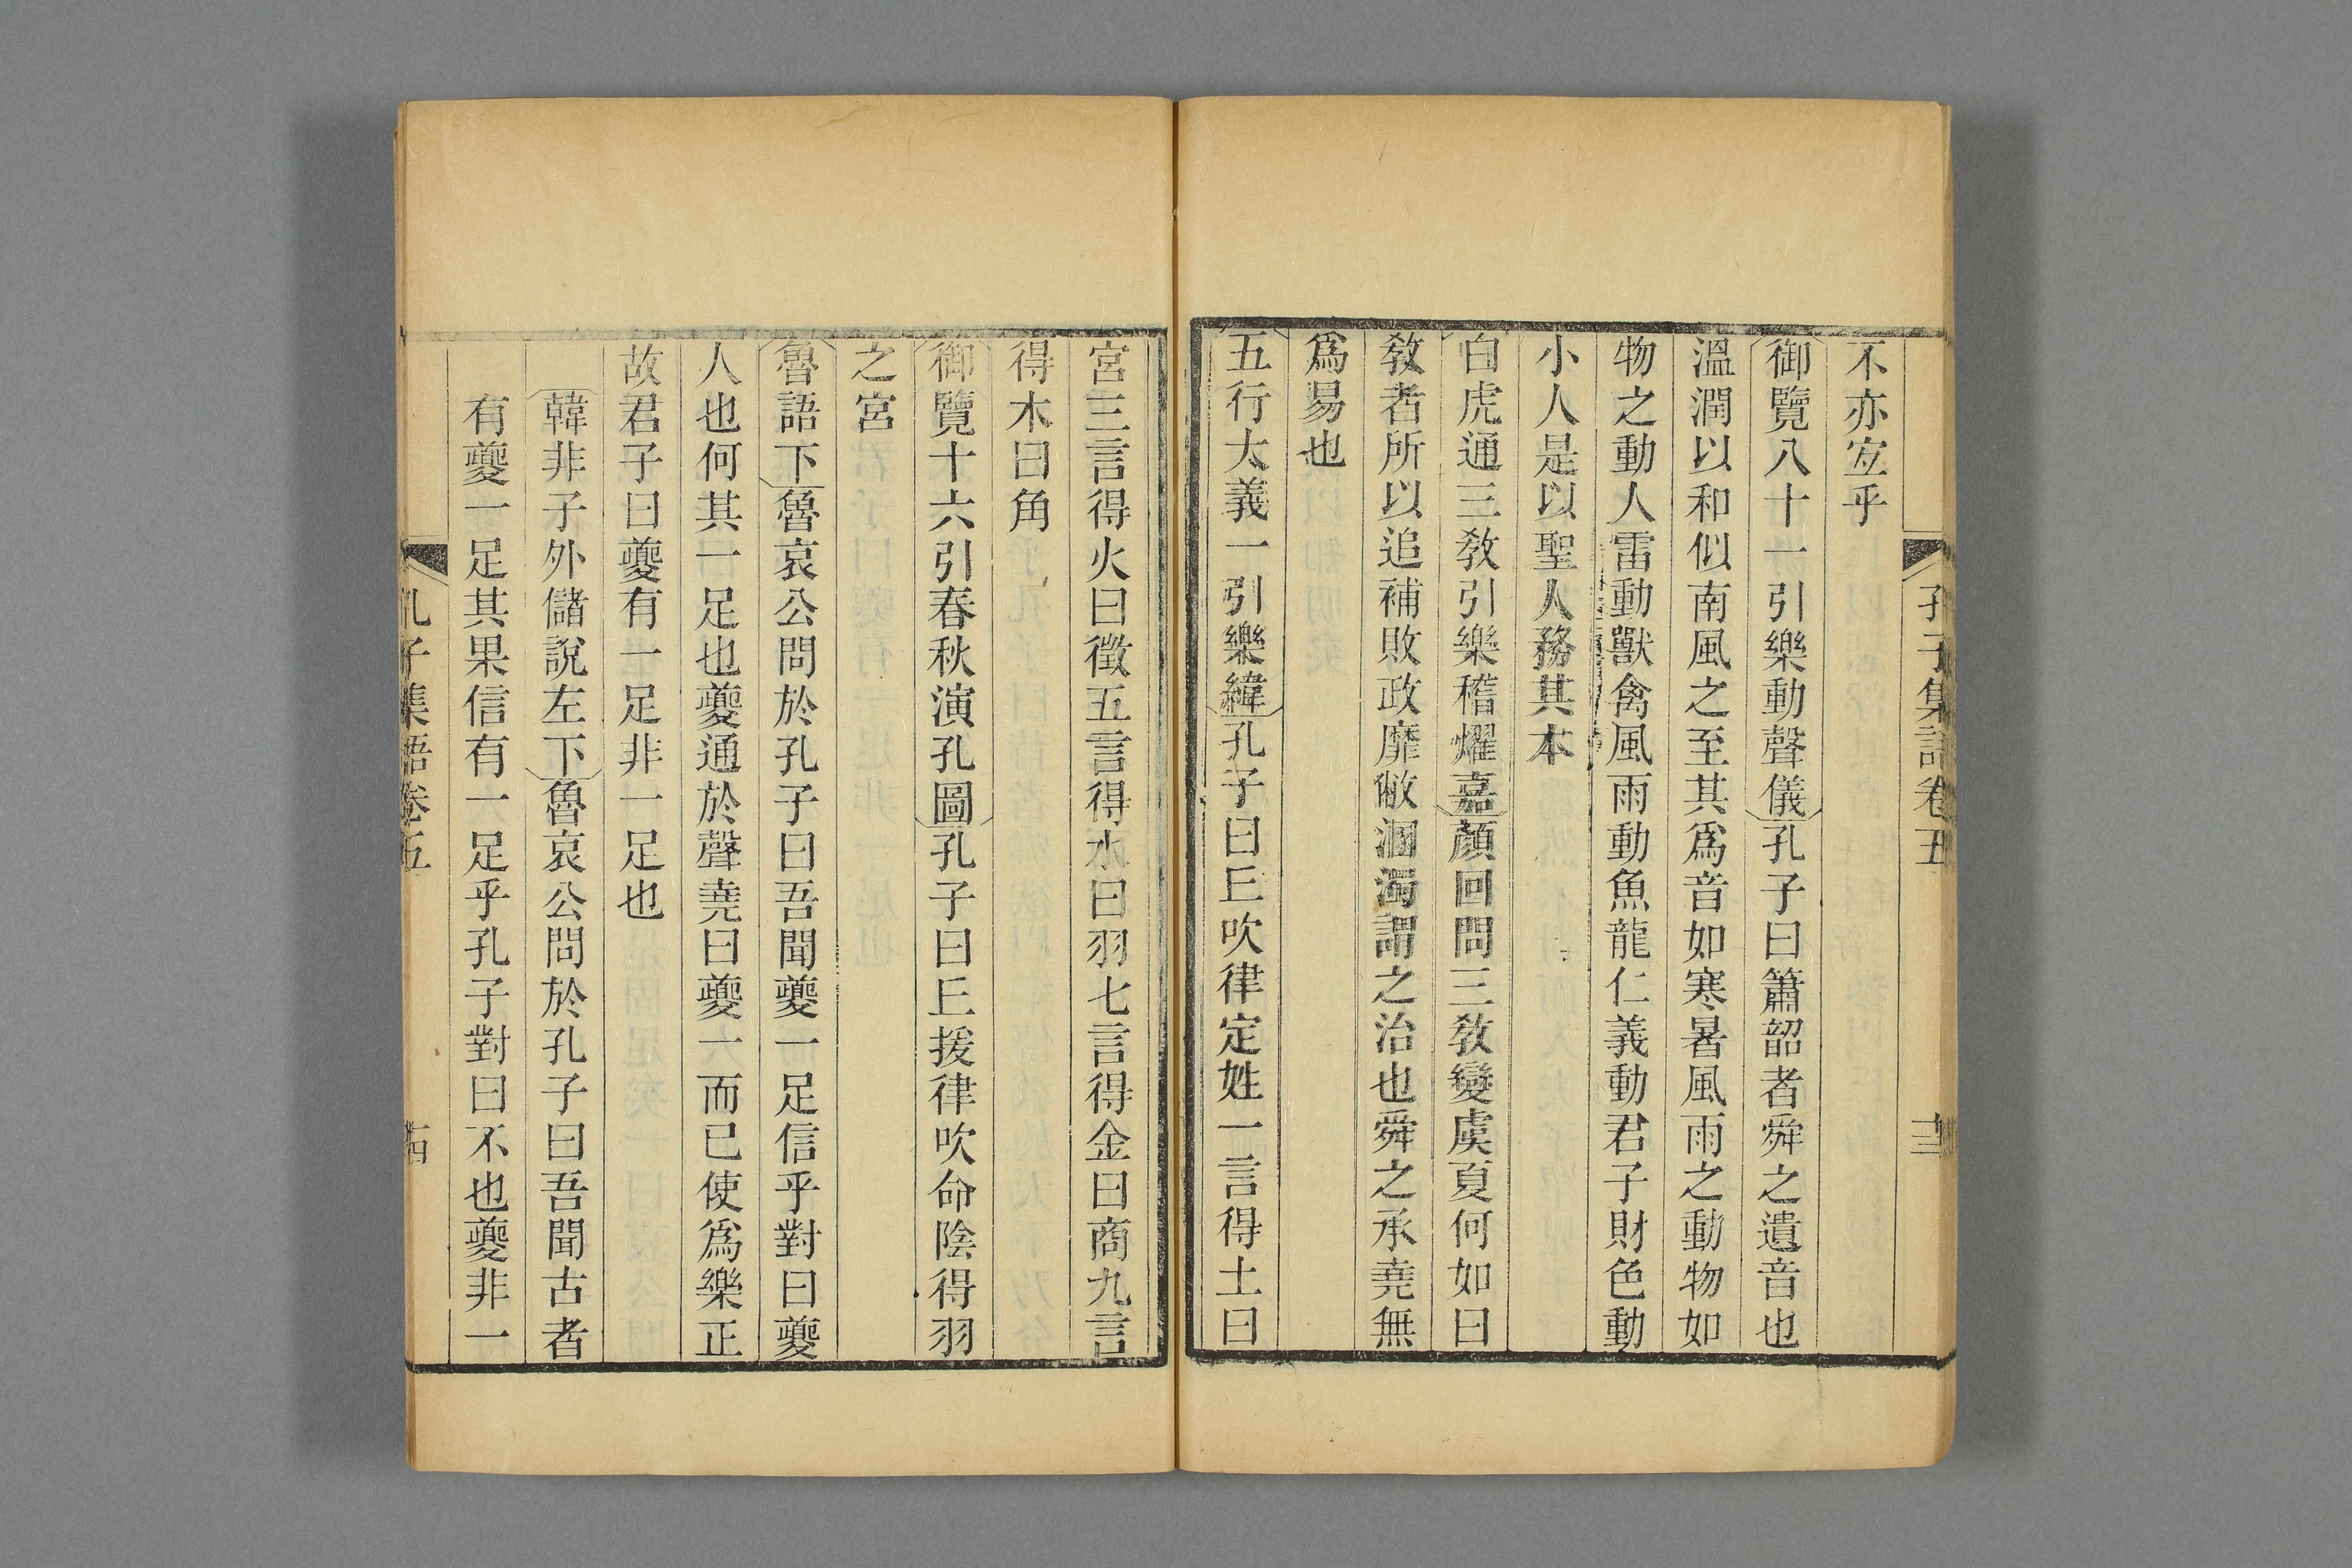 孔子集語卷五
十三
不亦宐乎
御覽八十一引樂動聲儀孔子曰簫韶者舜之遺音也
溫潤以和似南風之至其爲音如寒暑風雨之動物如
物之動人雷動獸禽風雨動魚龍仁義動君子財色動
小人是以聖人務其本
白虎通三敎引樂稽燿嘉顏回問三敎變虞夏何如曰
敎者所以追補敗政靡敝溷濁謂之治也舜之承堯無
爲易也
五行大義一引樂緯孔子曰丘吹律定姓一言得土曰
宮三言得火曰徵五言得水曰羽七言得金曰商九言
得木曰角
御覽十六引春秋演孔圖孔子曰丘援律吹命陰得羽
之宮
魯語下魯哀公問於孔子曰吾聞夔一足信乎對曰夔
人也何其一足也夔通於聲堯曰夔一而已使爲樂正
故君子曰夔有一足非一足也
韓非子外儲說左下魯哀公問於孔子曰吾聞古者
有夔一足其果信有一足乎孔子對曰不也夔非一
孔子集語卷五
古